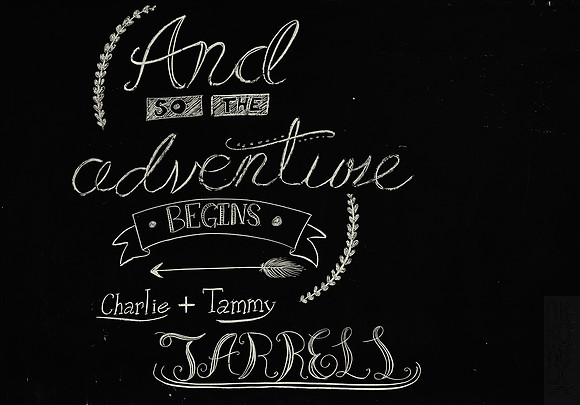 And
SO THE
adventure
BEGINS
Charlie + Tammy
TARRELL